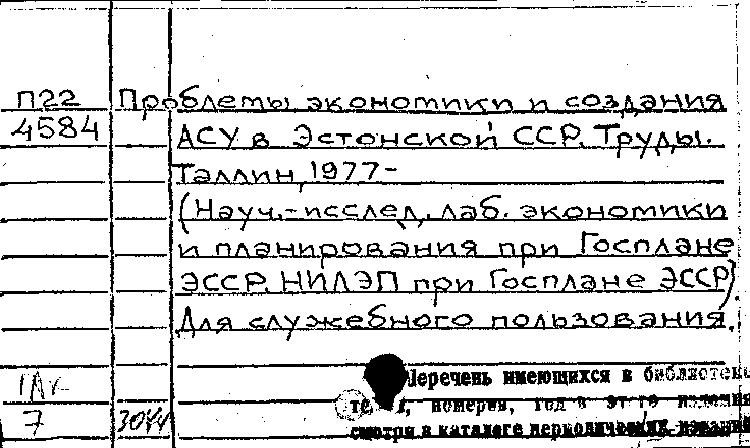 П22 Проблемы экономики и создания
4584 АСУ в Эстонской ССР. Труды.
Таллин, 1977-
(Науч.-исслед. лаб. экономики
и планирования при Госплане
ЭССР. НИЛЭП при Госплане ЭССР)
Для служебного пользования.
Перечень имеющихся в библиотеке
номерия, год
7 смотри в каталоге периодических